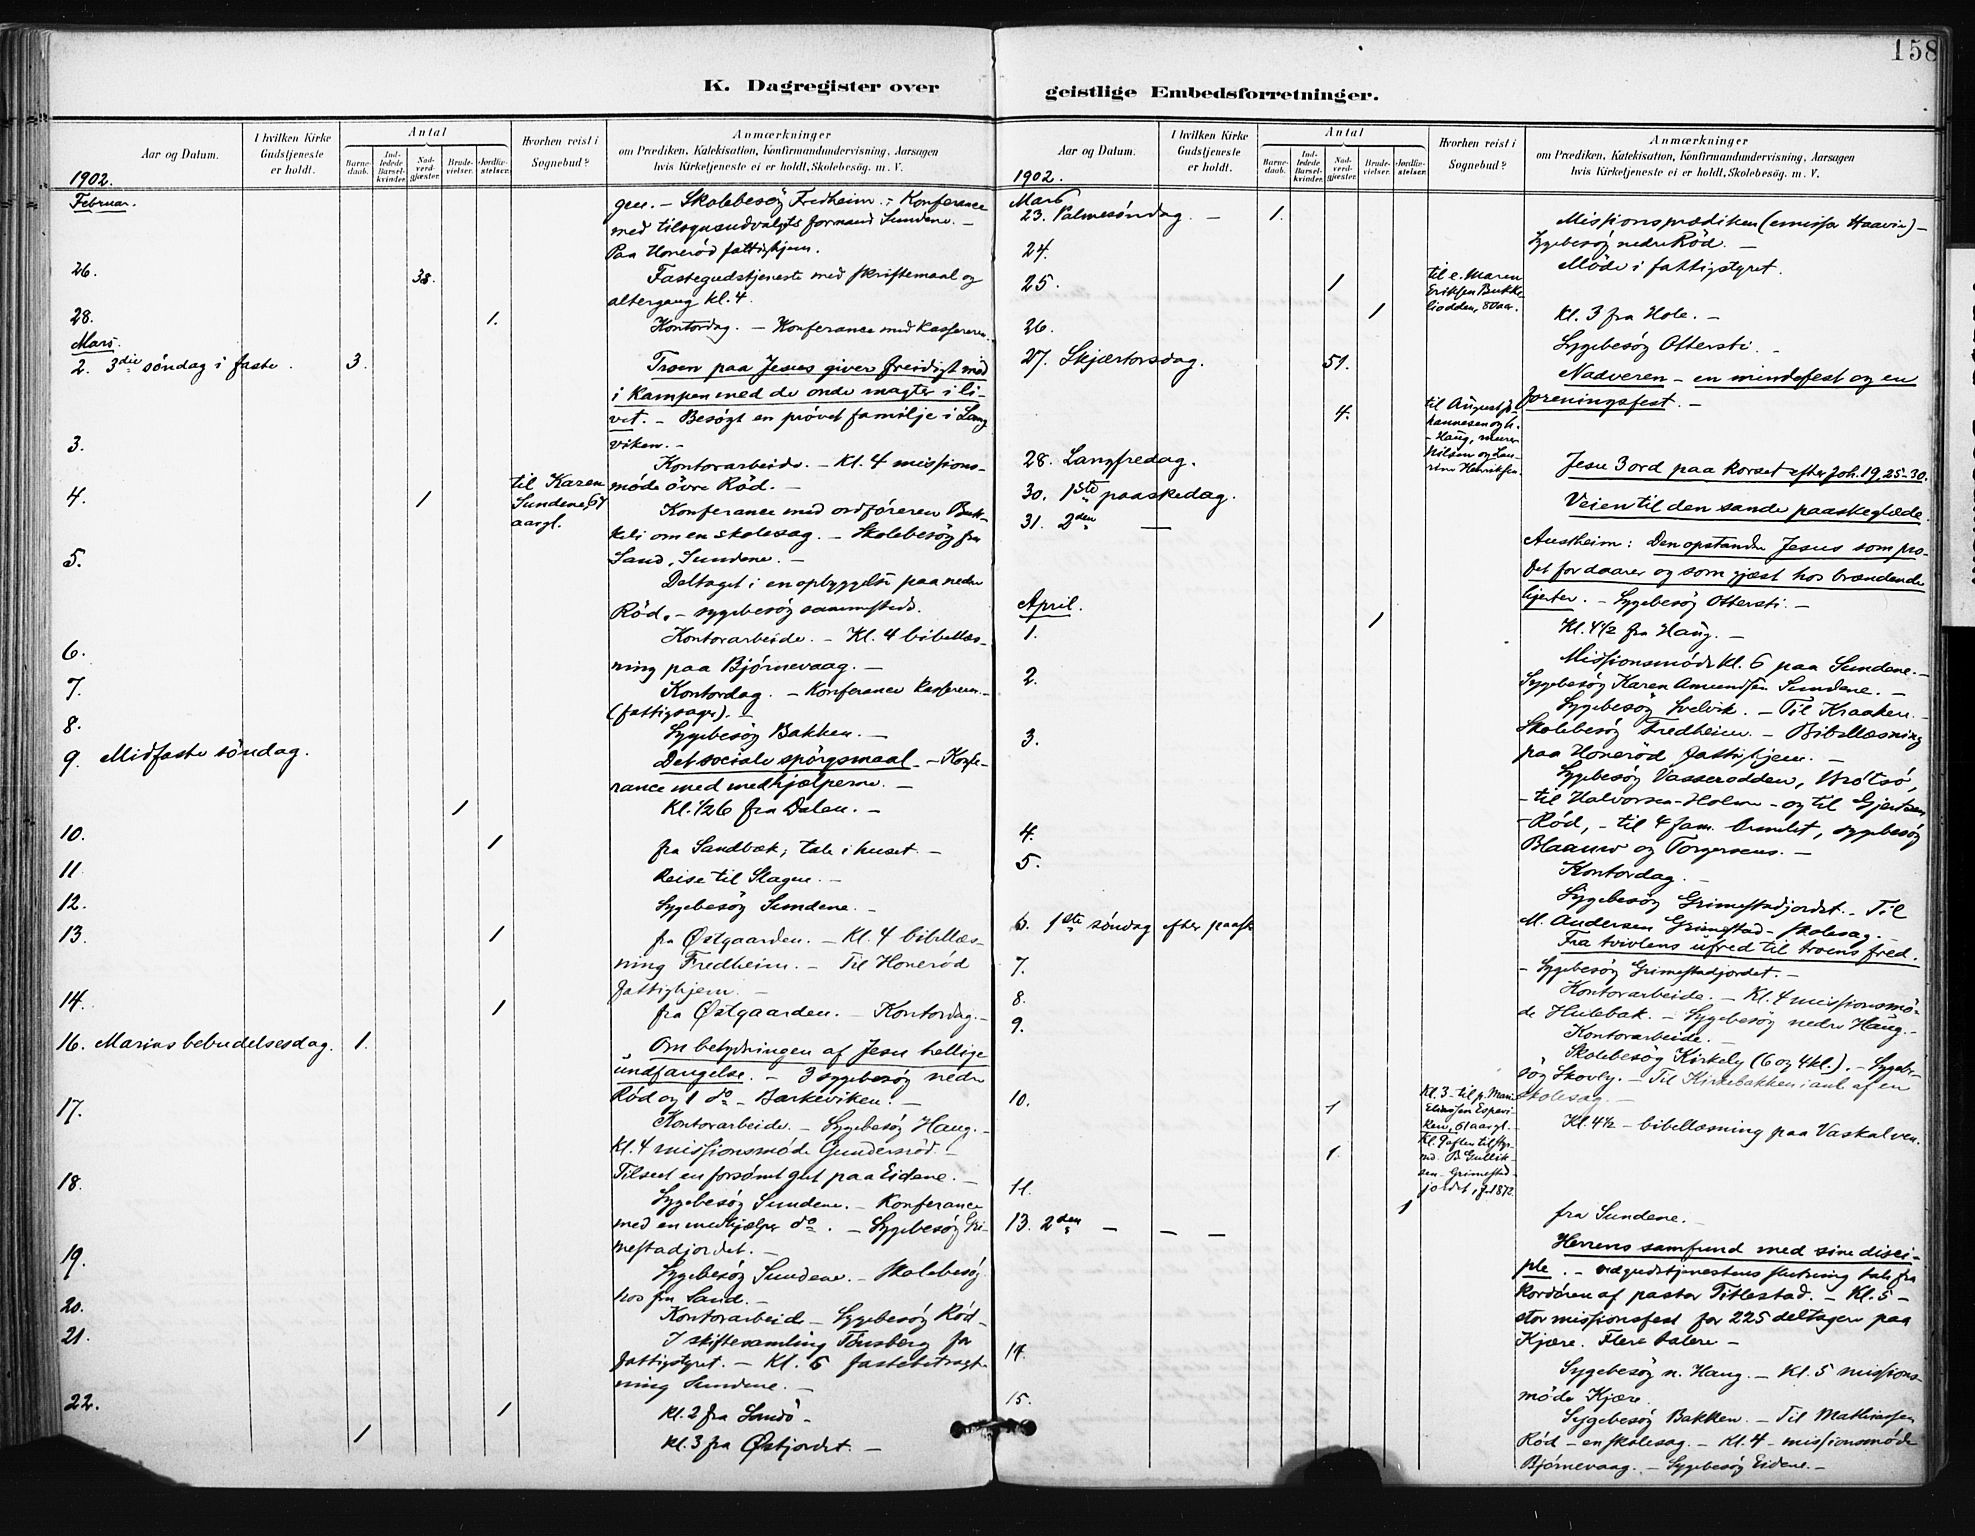 158
K. Dagregister over
geistlige Embedsforretninger.
Aar og Datum.
I hvilken Kirke
Gudstjeneste
er holdt.
Antal
Barne-
daab.
Ind-
ledede
Barsel-
kvinder.
Nad-
verd-
gjæster.
Brude-
vielser.
Jordfæ-
stelser.
Hvorhen reist i
Sognebud?
Anmærkninger
om Prædiken, Katekisation, Konfirmandundervisning, Aarsagen
hvis Kirketjeneste ei er holdt, Skolebesøg. m. V.
1902.
Februar.
gen. – Skolebesøg Fredheim. – Konferance
med tilsynsudvalgets formand Sundene. –
Paa Honerød fattighjem.
26. 38. Fastegudstjeneste med skriftemaal og
altergang kl. 4.
28. 1. Kontordag. – Konferance med kassereren.
Mars.
2. 3die søndag i faste. 3. Troen paa Jesus giver freidigt mod
i kampen med de onde magter i li-
vet. – Besøgt en prøvet familje i Lang
viken. –
3. Kontorarbeide. – Kl. 4 missions-
møde övre Röd. –
4. 1 til Karen
Sundene, 67
aargl.
Konferance med ordføreren Buk-
keli om en skolesag. – Skolebesøg frn
Sand, Sundene. –
5. Deltaget i en opbyggelse paa nedre
Röd. – sygebesøg sammesteds.
6. Kontorarbeide. – Kl. 4 bibellæs-
ning paa Bjørnevaag. –
7. Kontordag. – Konferance kassereren. –
(fattigsager). –
8. Sygebesøg Bakken. –
9. Midfaste søndag. Det sociale spörgsmaal. – Konfe-
rance med medhjælperne. –
1 Kl. 1/2 6 fra Dalen. –
10. 1 fra Sandbæk; tale i huset. –
11. Reise til Slagen. –
12. Sygebesøg Sundene. –
13. 1 fra Østgaarden. – Kl. 4 bibellæs-
ning Fredheim. – Til Honerød
fattighjem. –
14. 1 fra Østgaarden. – Kontordag. –
16. Marias bebudelsesdag. 1. Om betydningen af Jesu hellige
undfangelse. – 3 sygebesøg nedre
Röd og 1 do – Barkeviken. –
17. Kontorarbeide. – Sygebesøg Haug. –
Kl. 4 missionsmøde Gundersröd. –
Tilseet en forsömt gut paa Eidene. –
18. Sygebesøg Sundene. – Konferance
med en medhjælper do. – Sygebesøg Gri-
mestadjordet. –
19. Sygebesøg Sundene. – Skolebesøg
hos frn Sand. –
20. Kontorarbeide – Sygebesøg Röd –
21. I skiftesamling Tönsberg for
fattigstyret. – Kl. 5 fastebetragt-
ning Sundene. –
22. 1 Kl. 2 fra Sandö –
1 Kl. 3 fra Østjordet. –
Aar og Datum.
I hvilken Kirke
Gudstjeneste
er holdt.
Antal
Barne-
daab.
Ind-
ledede
Barsel-
kvinder.
Nad-
verd-
gjæster.
Brude-
vielser.
Jordfæ-
stelser.
Hvorhen reist i
Sognebud?
Anmærkninger
om Prædiken, Katekisation, Konfirmandundervisning, Aarsagen
hvis Kirketjeneste ei er holdt, Skolebesøg. m. V.
1902.
Mars
23. Palmesöndag. – 1. Missionsprædiken (emissær Haavie) –
Sygebesøg nedre Röd. –
24. Möde i fattigstyret.
25. 1 til e. Maren
Eriksen Bukke-
liodden, 80 aar.
1 Kl. 3 fra Hole. –
26. Sygebesøg Ottersti. –
27. Skjærtorsdag. 51. Nadveren – en mindefest og en
foreningsfest. –
4. til August Jo-
hannesen og h.
– Haug, murer
Nilsen og Lau-
rine Henriksen.
28. Langfredag. Jesu 3 ord paa korset efter Joh. 19, 25-30.
30. 1ste paaskedag. Veien til den sande paaskeglæde.
31. 2den — Austheim: Den opstandne Jesus som pro-
fet for daarer og som gjæst hos brændende
hjerter. – Sygebesøg Ottersti. –
April.
1. 1 Kl. 4 1/2 fra Haug. –
Missionsmøde kl. 6 paa Sundene. –
2. Sygebesøg Karen Amundsen Sundene. –
Sygebesøg Svelvik. – Til Kraaken. –
3. Skolebesøg Fredheim. – Bibellæsning
paa Honerød fattighjem. –
Sygebesøg Vasserodden, Brötsö,
– til Halvorsen-Holm – og til Gjertsen
– Röd, – til 4 fam. Ormelet, sygebesøg
4. Blaauw og Torgersens. –
5. Kontordag. –
Sygebesøg Grimestadjordet. – Til
M. Andersen Grimestad – skolesag. –
6. 1ste söndag efter paaske Fra tvivlens ufred til troens fred.
– Sygebesøg Grimestadjordet. –
7. Kontorarbeide. – Kl. 4 missionsmö-
de Hulebak. – Sygebesøg nedre Haug. –
8. Kontorarbeide. –
9. Skolebesøg Kirkely (6 og 4 kl.). – Sygebe-
søg Skovly. – Til Kirkebakken i anl. af en
skolesag. –
10. 1 Kl. 3 – til p. Mari
Eliassen Espevi-
ken, 51 aar gl. –
Kl. 4 1/2 – bibellæsning paa Vaskalven.
1. Kl. 9 aften til styr-
md. B Gullik-
sen – Grimestad-
jordet, f. 1872.
11. 1 fra Sundene. –
13. 2den – – – Herrens samfund med sine disci-
ple. – ved gudstjenestens slutning tale fra
kordören af pastor Titlestad. – Kl. 5 –
stor missionsfest for 225 deltagere paa
Kjære. Flere talere –
14. Sygebesøg n. Haug. – Kl. 5 missions-
møde Kjære.
15. Sygebesøg Bakken. – Til Mathiassen
Röd – en skolesag. – Kl. 4 – missionsmøde
Bjørnevaag. – Sygebesøg Eidene. –